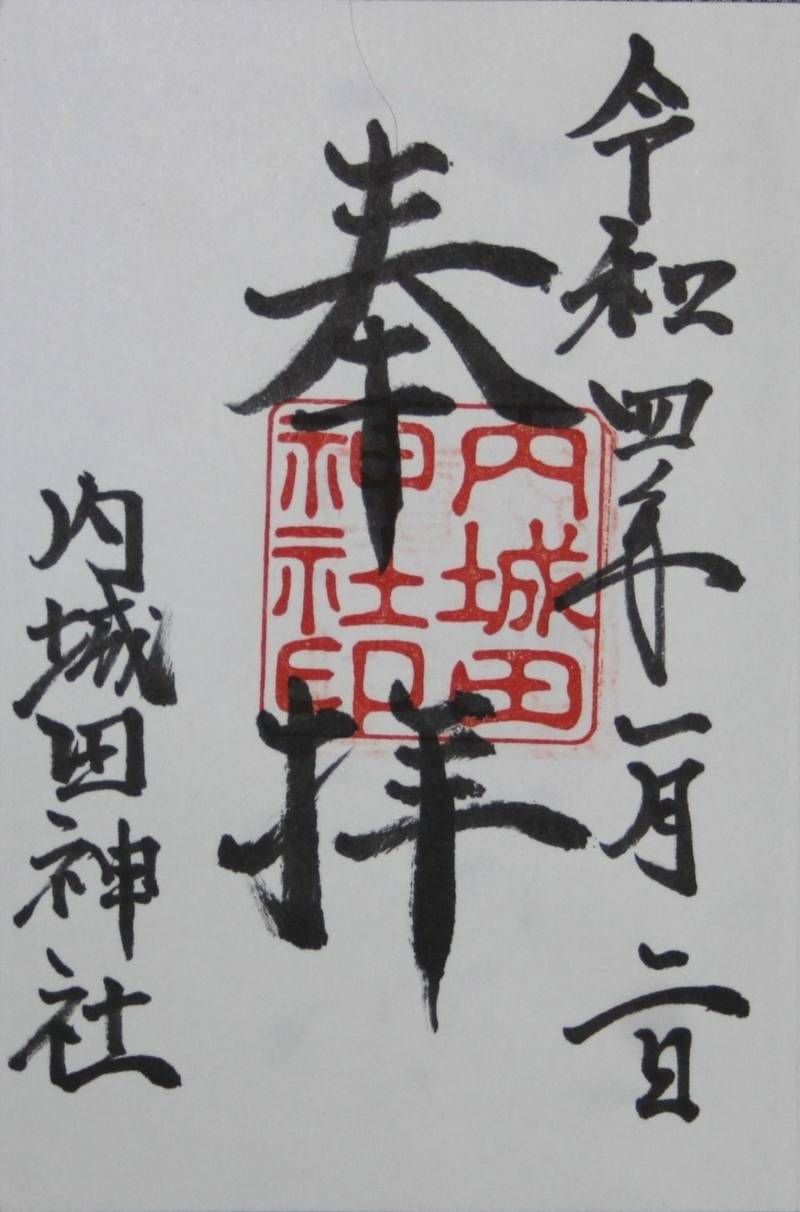 令和四年一月二日
奉拝
内城田
神社印
内城田神社